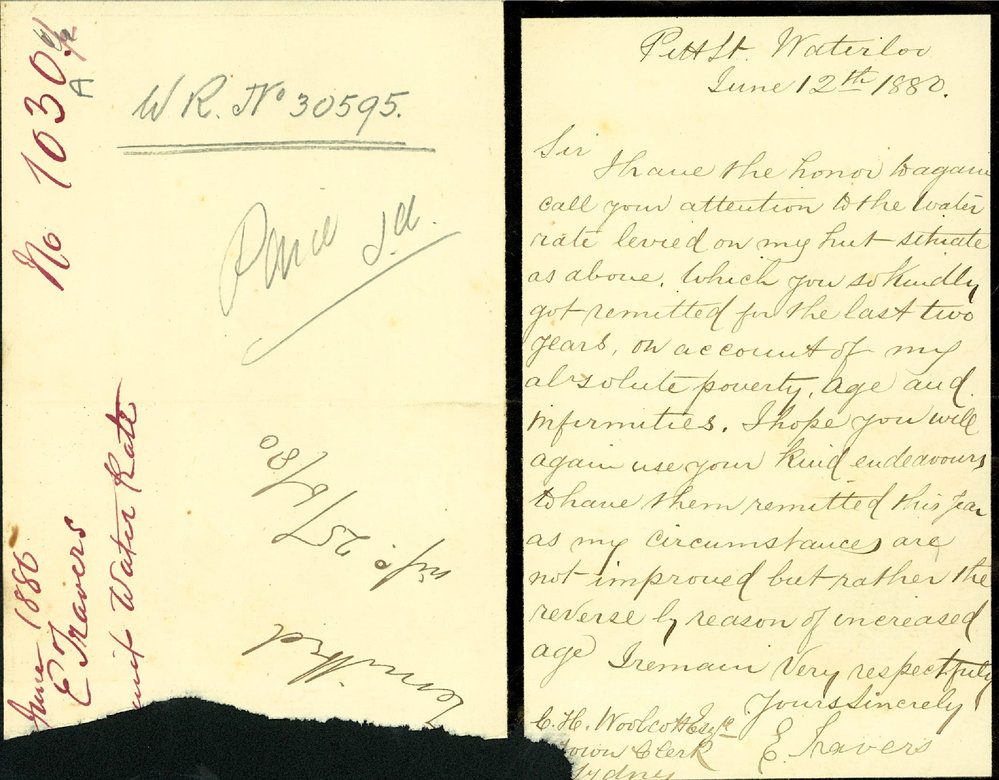 No 1030
A
W R. No 30595.
June 1880
E Travers
Water Rate
25/6/80
Remitted
Pitt St. Waterloo
June 12th 1880.
Sir
I have the honor to again
call your attention to the water
rate levied on my hut situate
as above. Which you so kindly
got remitted for the last two
years, on account of my
absolute poverty, age and
infirmities. I hope you will
again use your kind endeavours
to have them remitted this year
as my circumstances are
not improved but rather the
reverse by reason of increased
age I remain Very respectfuly
Yours Sincerely
C. H. Woolcott Esqre
Town Clerk
Sydney
E. Travers